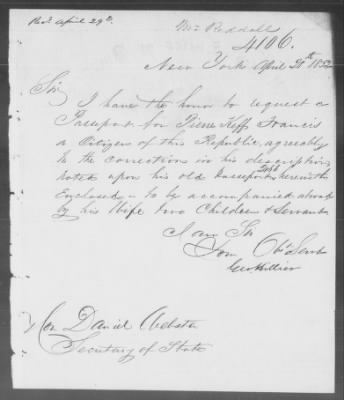 Rec. April 29th
Mr Reddall
4106.
New York April 28th 1852
Sir
I have the honor to request a
Passport for Pierre Francis
a Citizen of this Republic, agreeably
to the corrections in his description
noted upon his old Passport herewith
Enclosed - to be accompanied abroad
by his Wife two Children & Servant
I am Sir
Your Obt Servt
Hon. Daniel Webster
Secretary of State